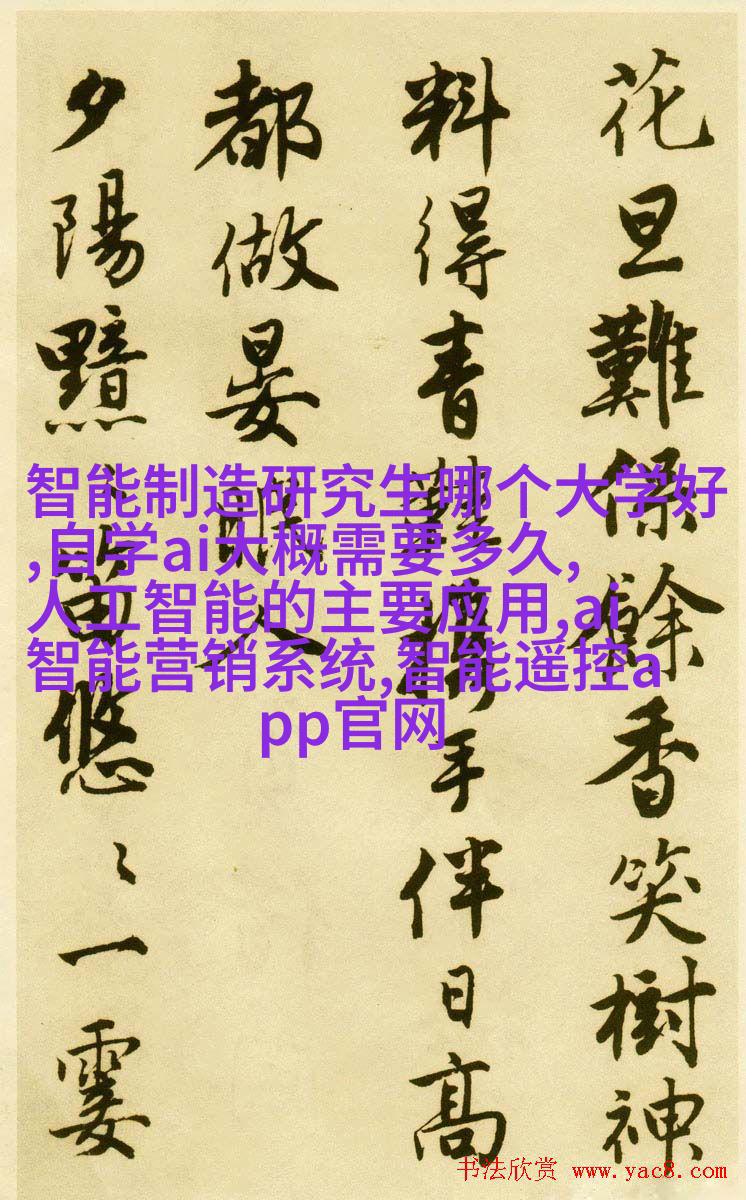 花旦難保餘香笑樹神
料得青鞋攜手伴日高
都做晏眠人
夕陽黯笛悠〻一霎
智能制造研究生哪个大学好
,自学ai大概需要多久,
人工智能的主要应用,ai
智能营销系统,智能遥控a
pp官网
书法欣赏 www.yac8.com